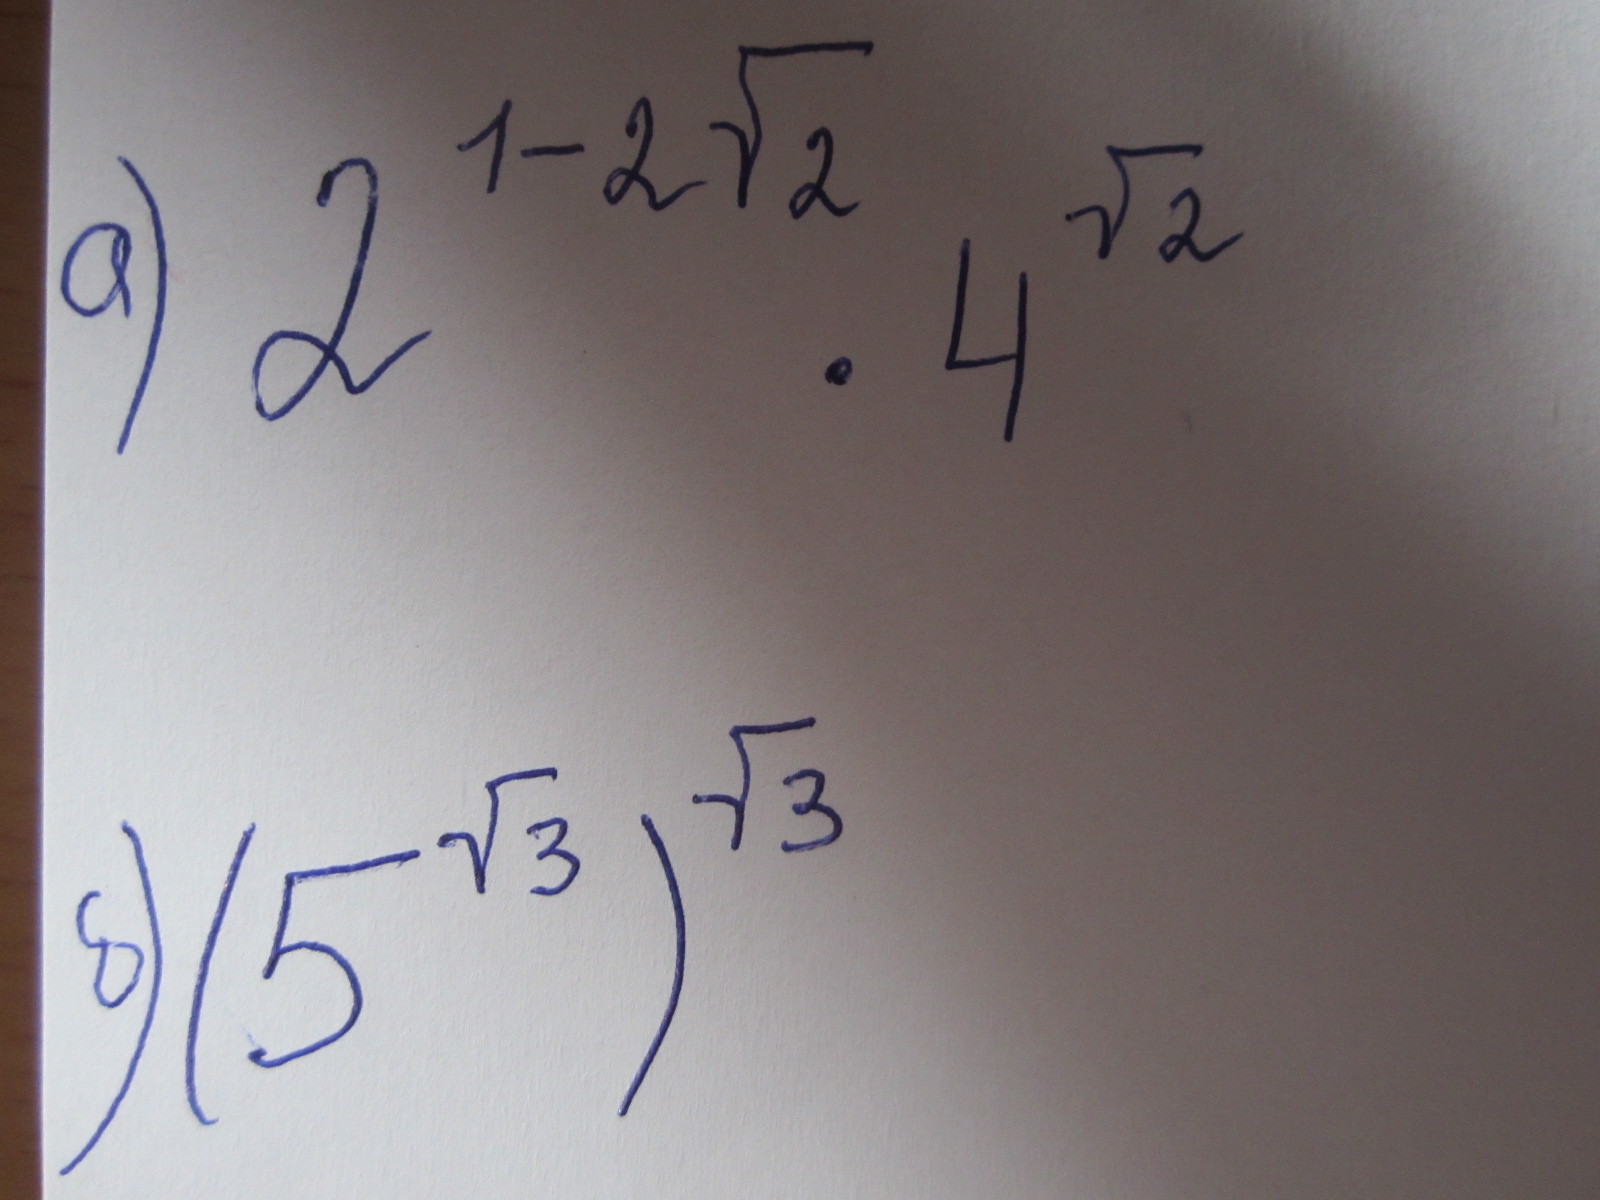 а) 2^{1-2√2} · 4^{√2}
б) (5^{√3})^{√3}